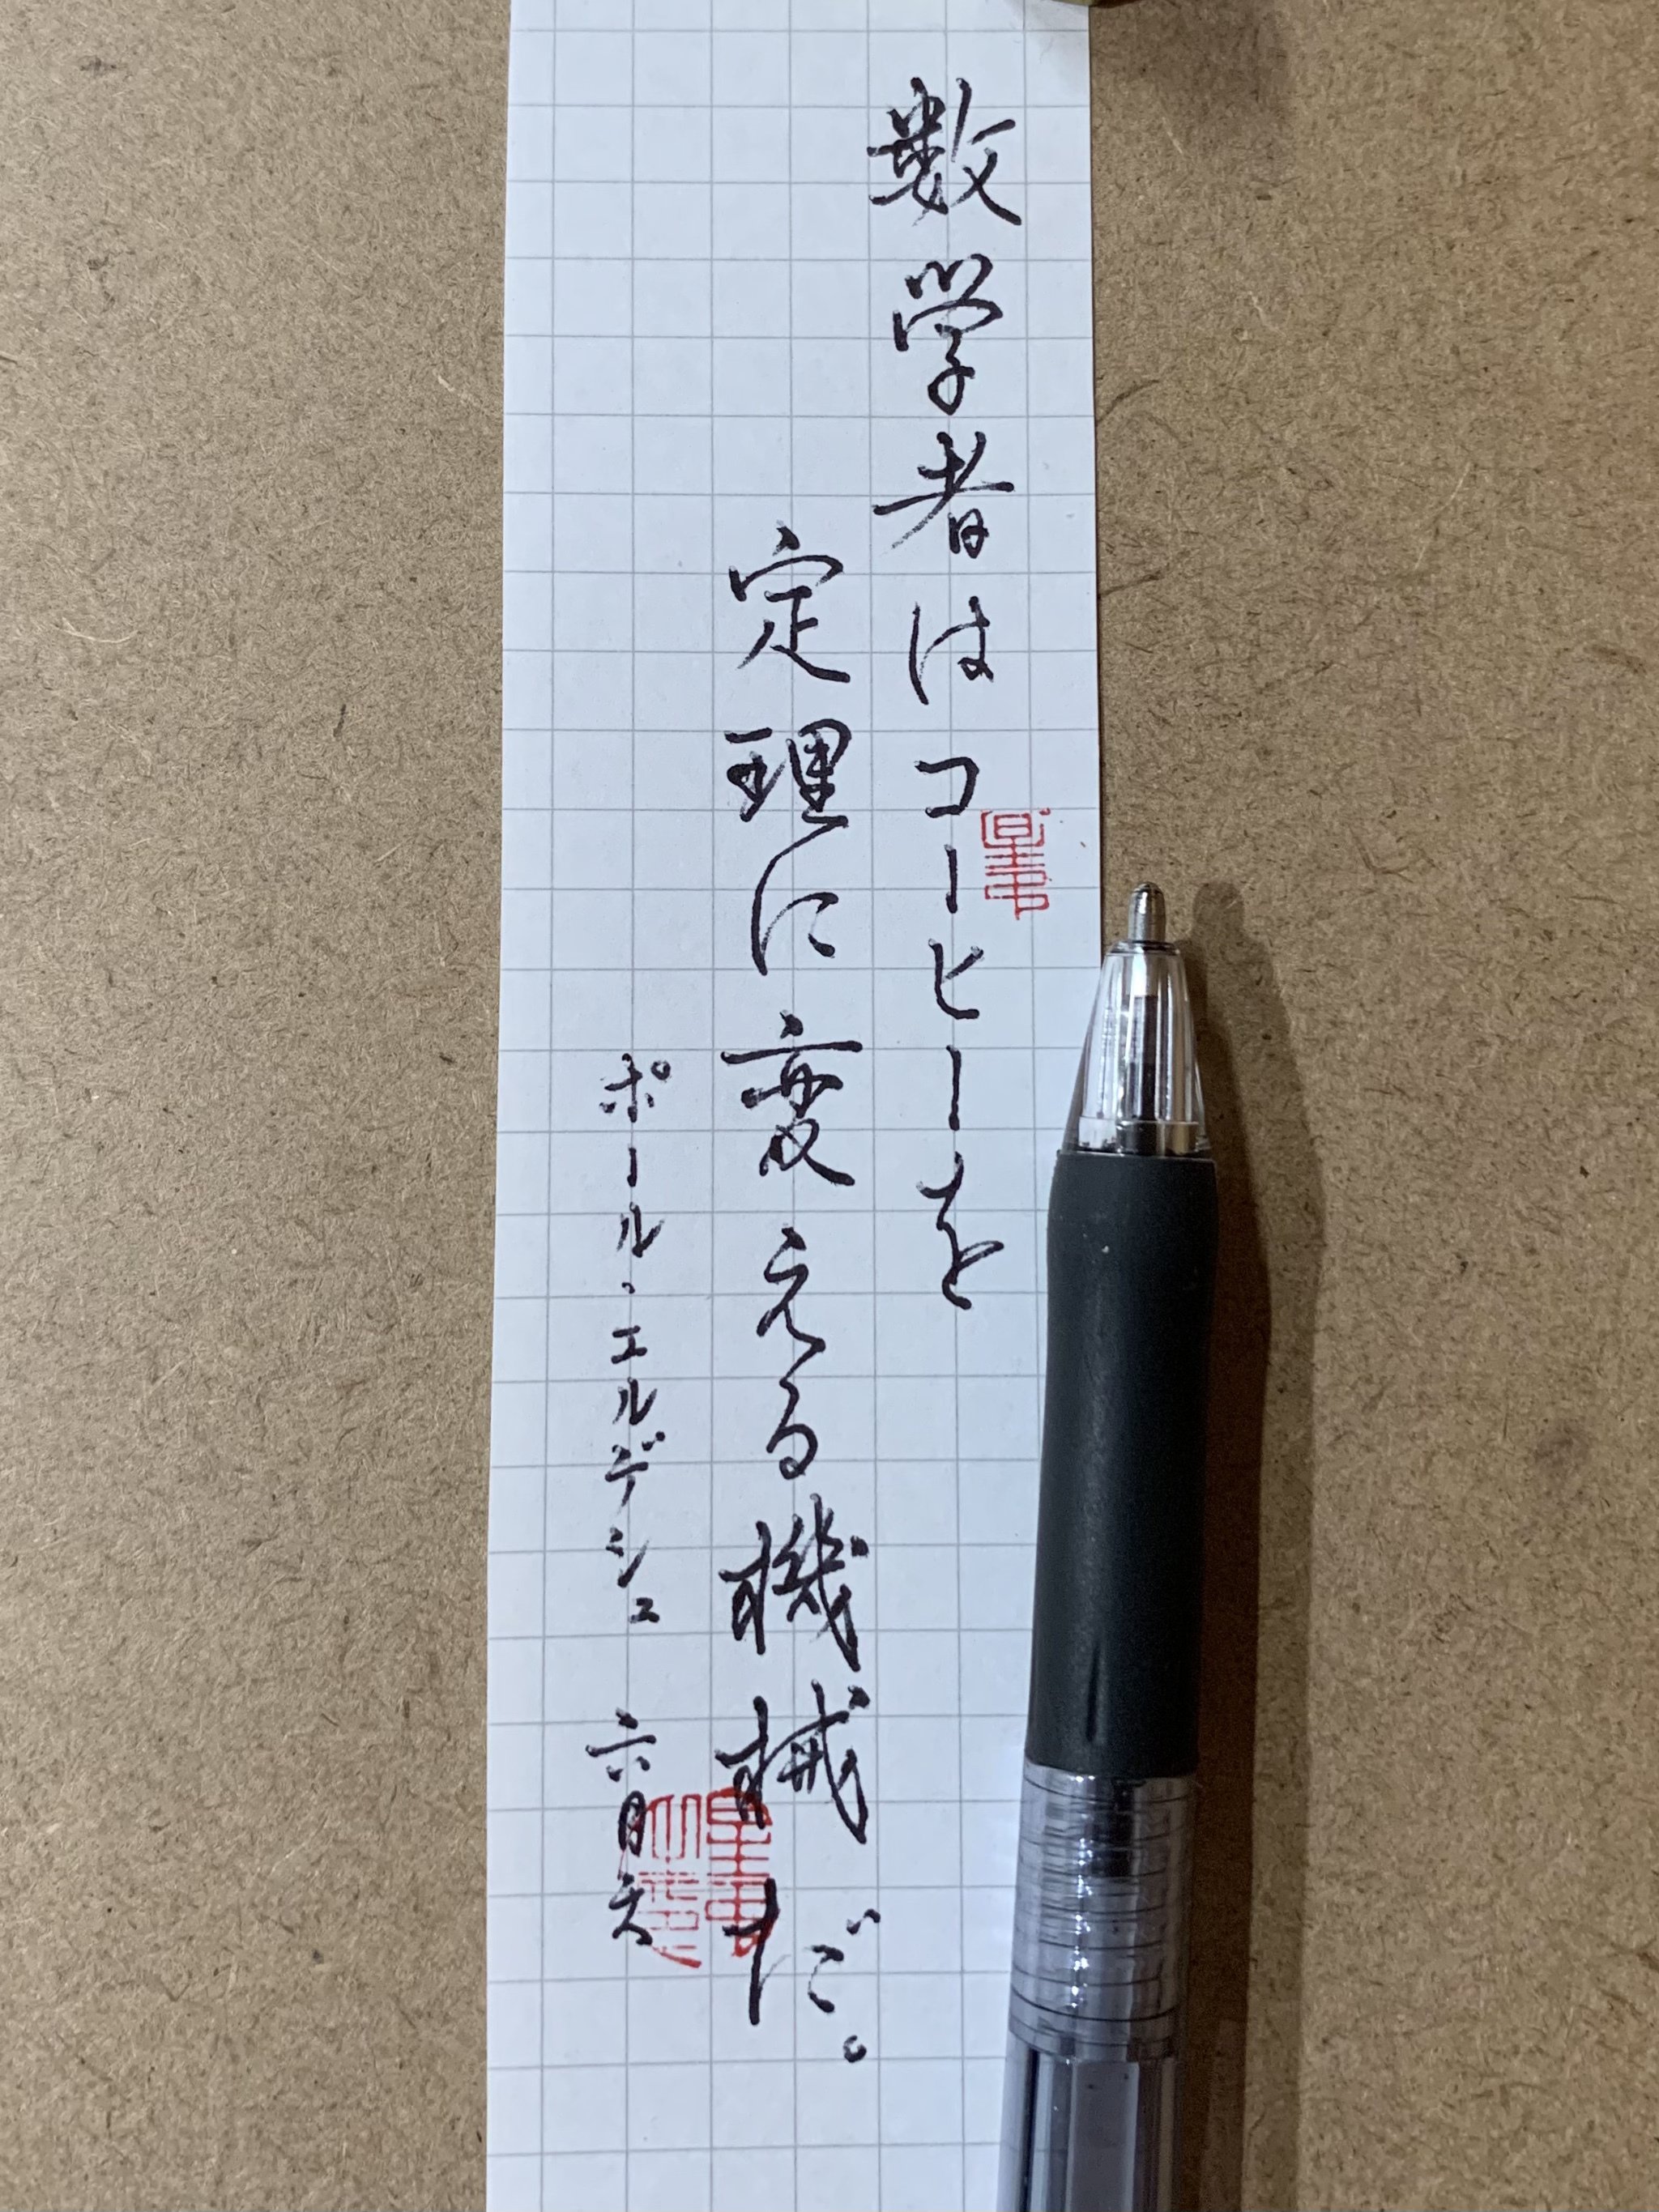 数学者はコーヒーを
定理に変える機械だ。
ポール・エルデシュ 六月天